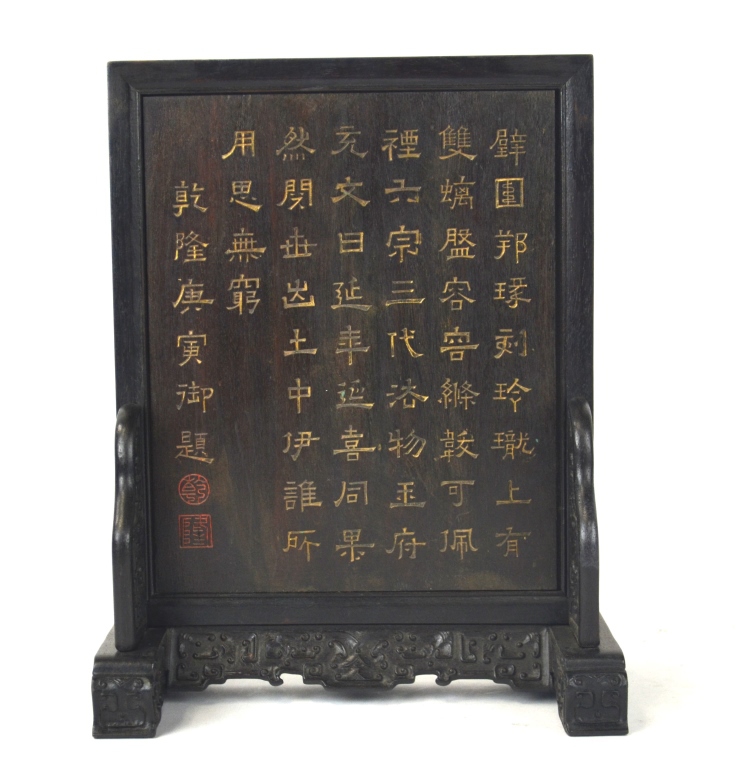 璧圍琢刻玲瓏上有
雙螭盤容容絛韍可佩
禋六宗三代法物玉府
充文日延年延喜同果
然閱世出土中伊誰所
用思無窮
乾隆庚寅御題
乾
隆